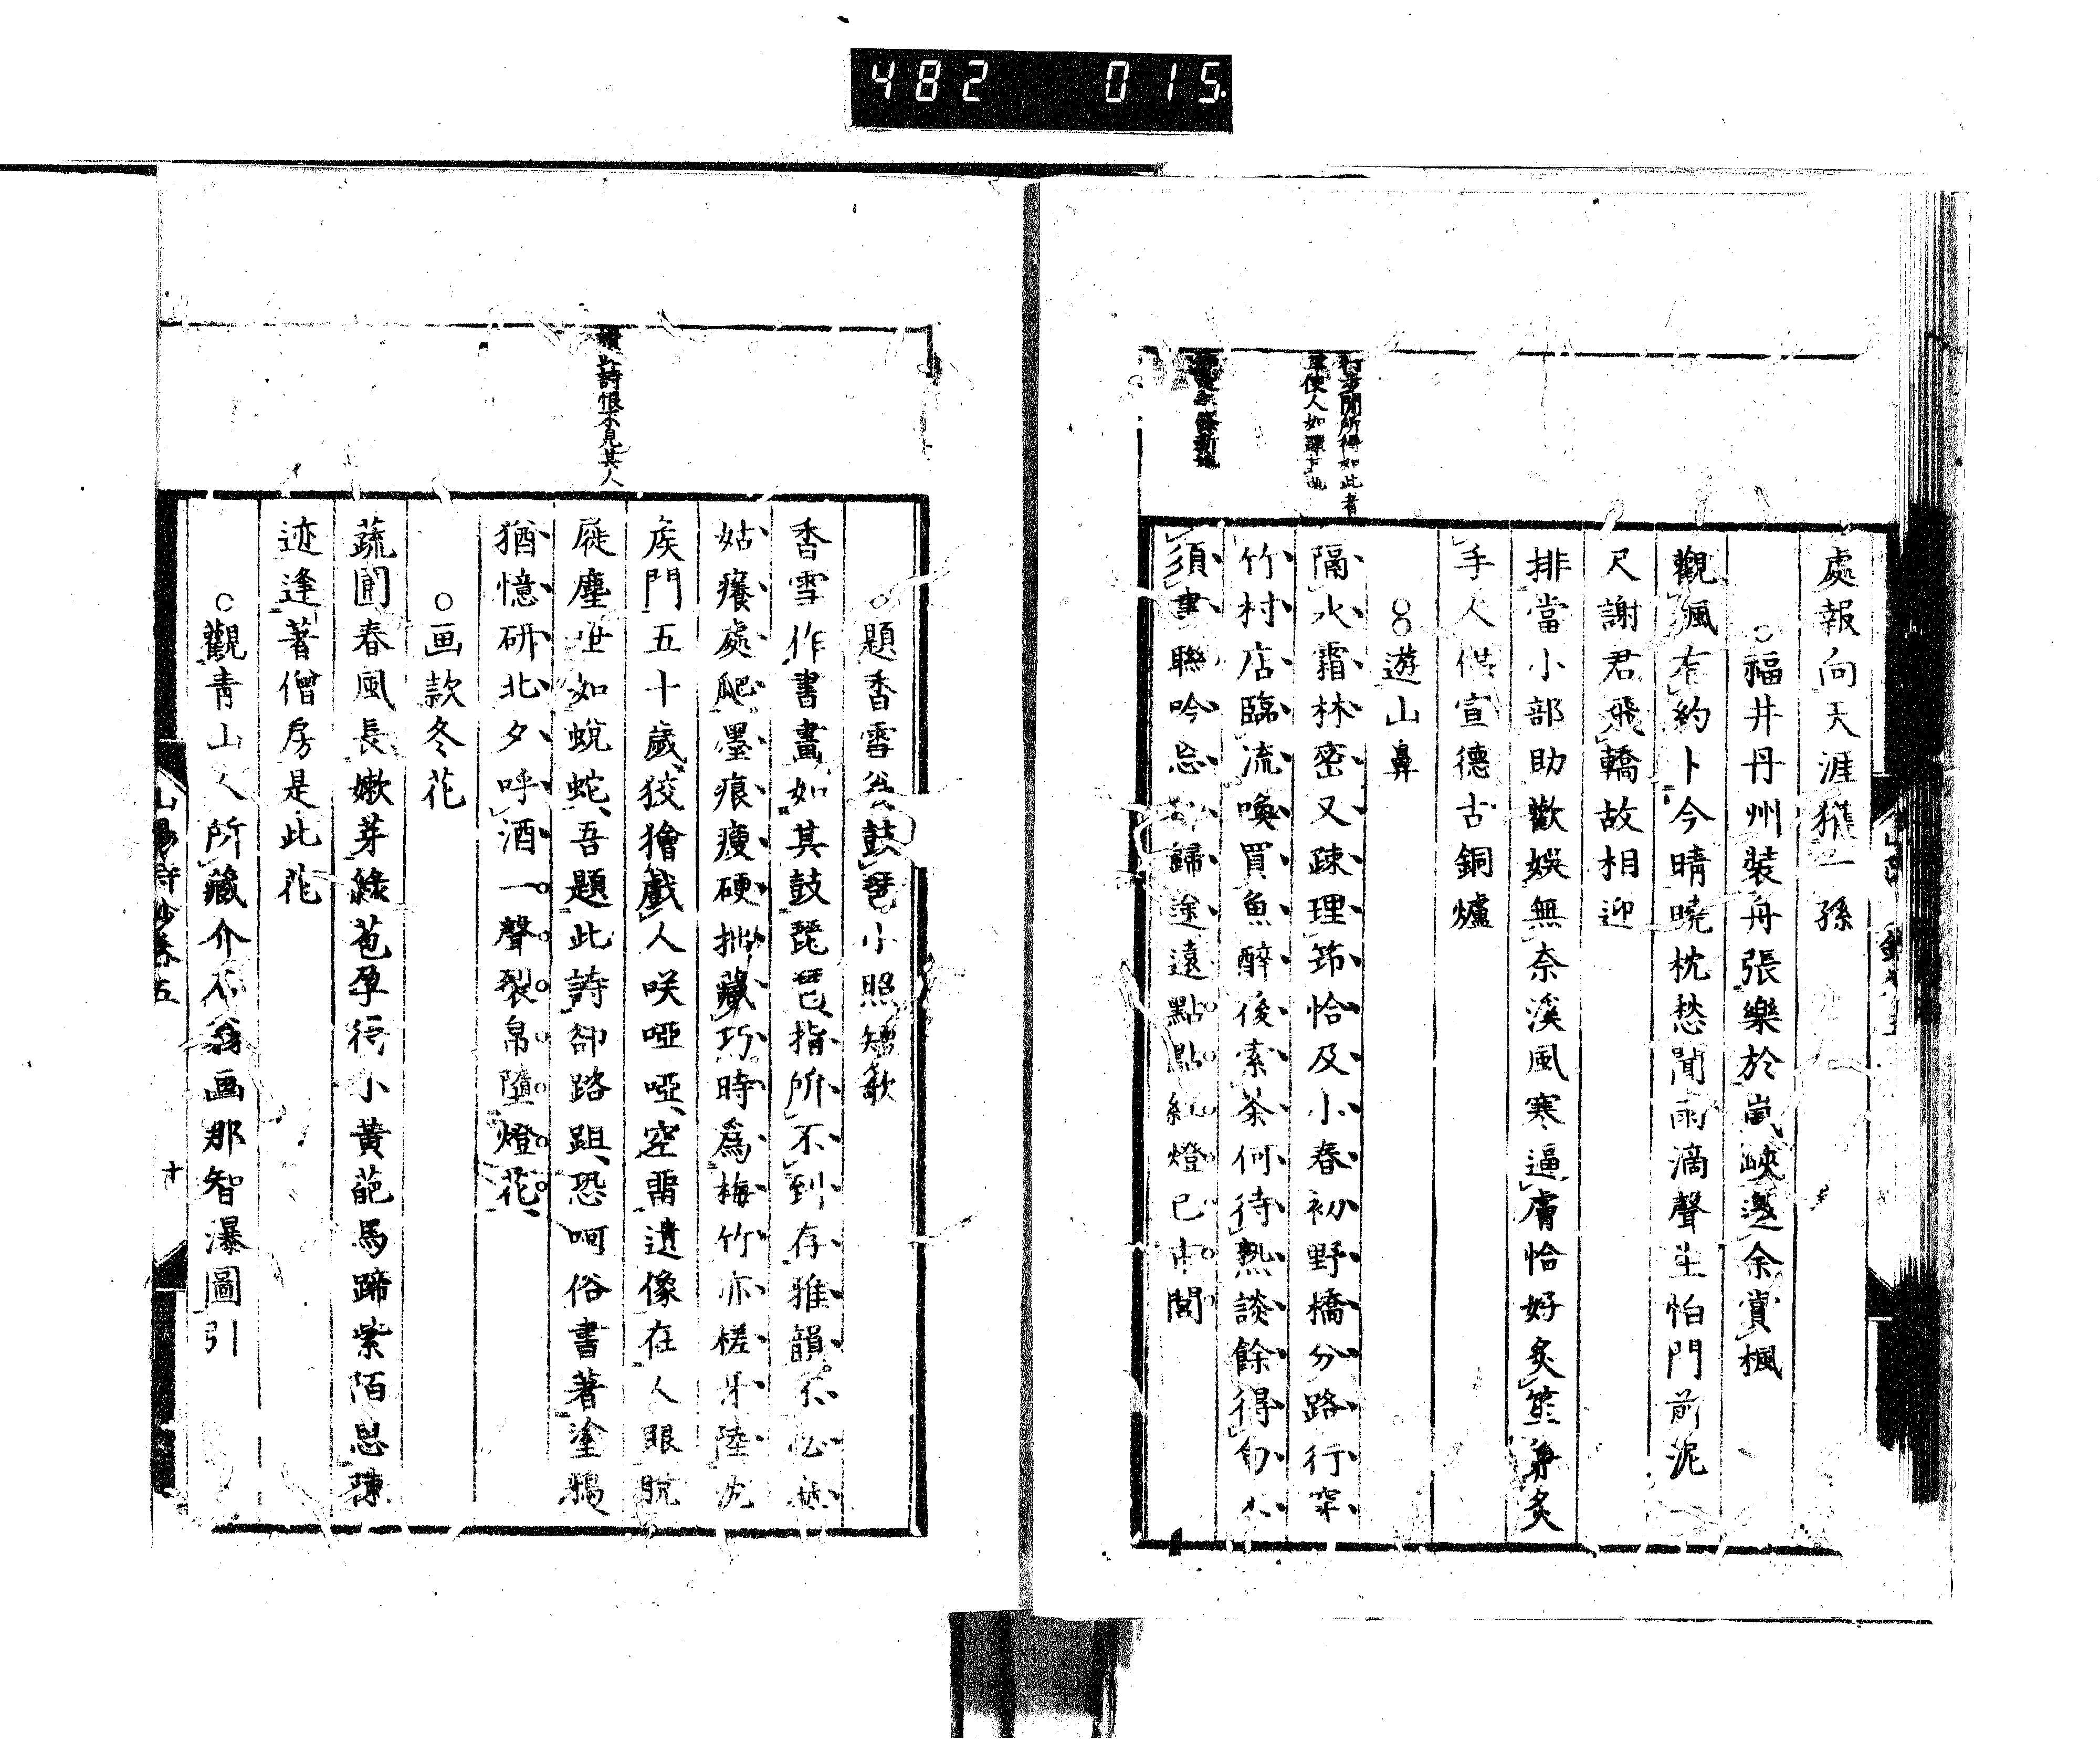 482 015
行歩間所得如此者
處報向天涯猶一孫
○福井丹州裝舟張樂於嵐峽邀余賞楓
觀楓有約卜今晴曉枕愁聞雨滴聲生怕門前泥
尺謝君飛轎故相迎
排當小部助歡娛無奈溪風寒逼膚恰好炙笙兼炙
手人供宣德古銅爐
○○遊山鼻
隔水霜林密又疎理筇恰及小春初野橋分路行穿
竹村店臨流喚買魚醉後索茶何待熟談餘得句不
須書聯吟忘 歸途遠點點紅燈已市閭
讀此詩恨不見其人
○題香雪翁鼓琵小照短歌
香雪作書畫如其鼓琵琶指所不到存雅韻不必
姑癢處爬墨痕瘦硬拙藏巧時爲梅竹亦槎牙陸沈
侯門五十歲狡獪戲人咲啞啞空留遺像在人眼脫
屣塵世如蛻蛇吾題此詩卻踏跙恐呵俗書著塗鴉
猶憶研北夕呼酒一聲裂帛墮燈花
○画款冬花
蔬圃春風長嫩芽綠苞孕得小黃葩馬蹄紫陌思陳
迹逢著僧房是此花
○觀靑山人所藏介不翁画那智瀑圖引
山陽詩鈔卷五
十